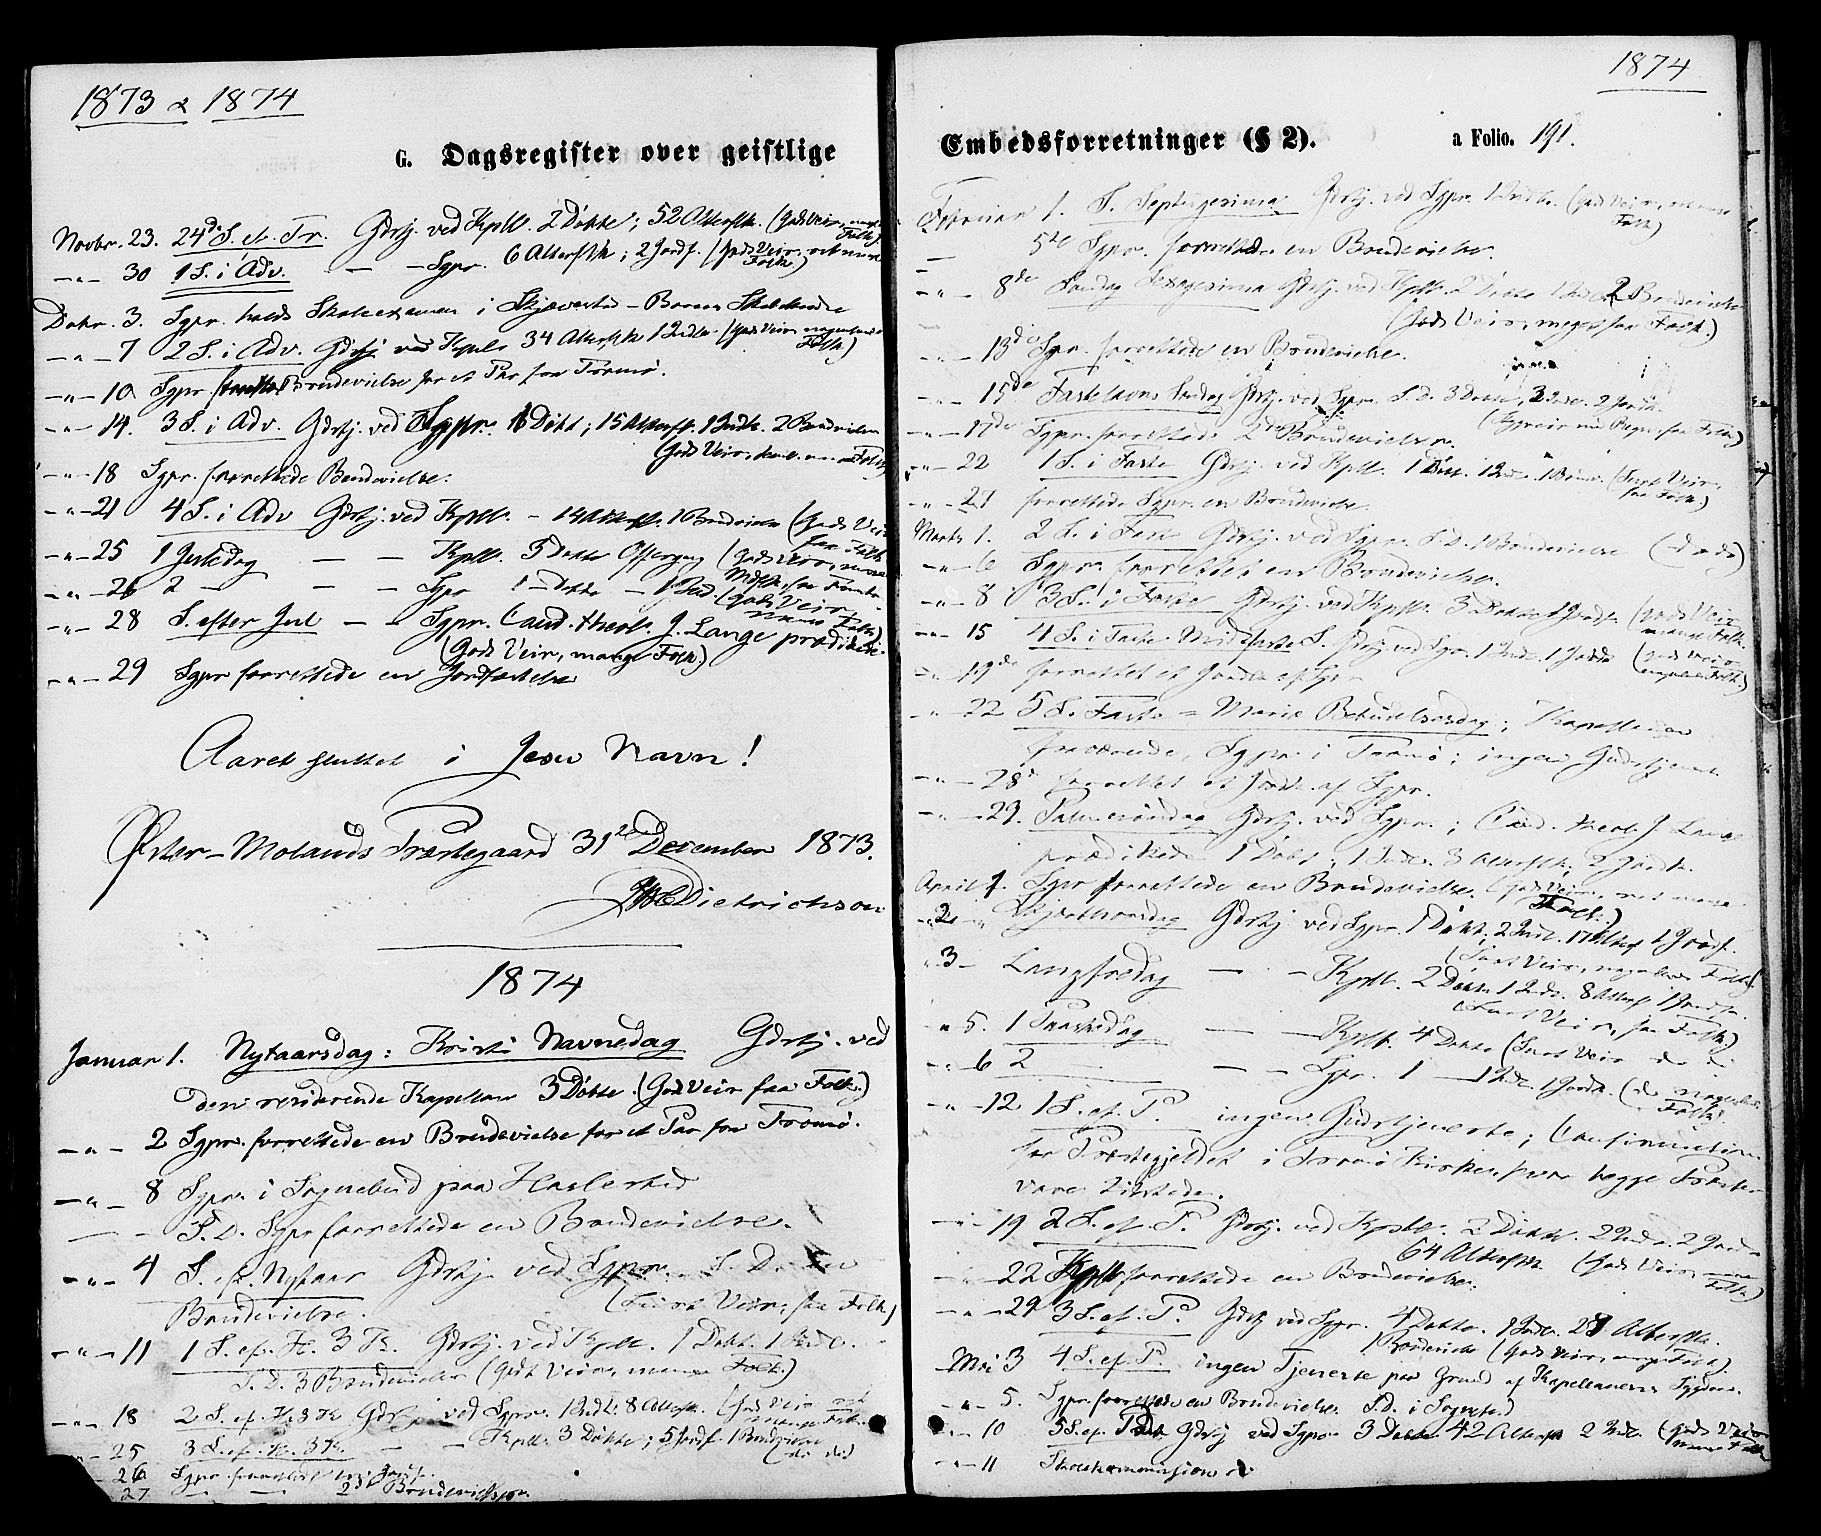 1873 & 1874
G. Dagsregister over geistlige
Novbr. 23. 24de S. ef. Tr. Gdstj. ved Kpll. 2 Döbte; 52 Altersgj. (Gods Veir, mange Folk)
-"- 30 1 S. i Adv. — — Sgpr. 6 Altersgj.; 2 Jordf. (Gods Veir,
Folk.)
Dcbr. 3. Sgpr. holdt Skoleexamen i
-"- 7 2 S. i Adv. Gdstj. ved Kpl. 34 Altersgj. 1 Indl. (Gods Veir,
Folk)
-"- 10 Sgpr. Brudevielse for et Par fra Tromö.
-"- 14. 3 S. i Adv. Gdstj. ved Sgpr. 1 Döbt; 15 Altersgj. 1 Indl. 2 Brudevielser
(Gods Veir, Folk)
-"- 18 Sgpr. forrettede Brudevielse.
-"- 21 4 S. i Adv Gdstj. ved Kpll. - 14 Altersgj. 1 Brudevielse (Gods Veir
faa Folk
-"- 25 1 Juledag — — Kpll. 5 Döbte Offergang (Gods Veir,
-"- 26 2 — — — Sgpr 1 Döbte
-"- 28 S. efter Jul — — Sgpr. Cand. theol. J. Lange prædikede.
(Gods Veir, mange Folk)
-"- 29 Sgpr forrettede en Jordfæstelse
Aaret sluttet i Jesu Navn!
Øster-Molands Præstegaard 31te December 1873.
Dietrichson
1874
Januar 1. Nytaarsdag: Kristi Navnedag Gdstj. ved
den residerende Kapellan 3 Döbte (Gods Veir faa Folk.)
-"- 2 Sgpr. forrettede en Brudevielse for et Par fra Tromö.
-"- 8 Sgpr. i Sognebud paa Haslested
— - S. D. Sgpr forrettede en Brudevielse.
-"- 4 S. ef. Nytaar Gdstj. ved Sgpr. S. D. en
Brudevielse. (Surt Veir, faa Folk)
-"- 11 1 S. ef. H. 3 K. Gdstj. ved Kpll. 1 Döbt. 1 Indl.
S. D. 3 Brudevielser (Godt Veir, mange Folk.)
-"- 18 2 S. ef. H. 3 K Gdstj. ved Sgpr. 1 Indl. 8 Altersgj. (Gods Veir
mange Folk.
-"- 25 3 S. ef. H. 3 K. — — Kpll. 3 Döbte; 5 Jordf. 1 Brudevielse
(do do)
26 Sgpr. forrettet en Jordf.
27 — — 2de Brudevielser.
1874
Embedsforretninger (§ 2). a Folio. 191.
Februar 1. S. Septuagesima Gdstj. ved Sgpr. 1 Indl. (Gods Veir,
Folk)
— 5te Sgpr. forrettede en Brudevielse.
-"- 8de Søndag Sexagesima Gdstj. ved Kpll. 2 Döbte 1 Indl. 2 Brudevielse
(Gods Veir, meget faa Folk.)
-"- 13de Sgpr. forrettede en Brudevielse.
-"- 15de Fastelavns Søndag Gdstj. ved Sgpr. S. D. 3 Döbte, 2 Jordf.
-"- 17de Sgpr. forrettede 2 Brudevielser. faa Folk)
-"- 22 1 S. i Faste Gdstj. ved Kpll. 1 Döbt. 1 Indl. 1 Brudev. (Surt Veir,
faa Folk)
-"- 27 forrettede Sgpr. en Brudevielse.
Marts 1. 2 S. i Faste Gdstj. ved Sgpr. S. D. 1 Brudevielse (do do)
-"- 6 Sgpr. forrettet en Brudevielse.
-"- 8 3 S. i Faste Gdstj. ved Kpll. 3 Döbte 1 Jordf. (Gods Veir
mange Folk.
-"- 15 4 S. i Faste Midfaste S. Gdstj. ved Sgpr. 1 Indl. 1 Jordf. (Gods Veir
Folk.)
-"- 19de forrettet et Jordf. af Sgpr
-"- 22 5 S. Faste = Mariæ Bebudelsesdag; Kapellanen
fraværende, Sgpr. i Tromö; ingen Gudstjeneste
-"- 28de forrettet et Jordf. af Sgpr.
-"- 29. Palmesöndag Gdstj. ved Sgpr.; Cand. theol. J. Lange
prædikede 1 Döbt; 1 Indl. 3 Altersgj. 2 Jordf.
April 1. Sgpr forrettede en Brudevielse. (Gods Veir,
Folk.)
"2. " Skjærthorsdag Gdstj ved Sgpr. 1 Döbt. 2 Indl. 17 Altersgj 1 Jordf.
(Surt Veir, Folk)
"3 - Langfredag — - Kpll. 2 Döbte 1 Indl. 8 Altersgj. 1 Jordf.
(Surt Veir, faa Folk)
" 5. 1 Paaskedag — — Kpll. 4 Döbte (Surt Veir do do
" 6 2 — — — Sgpr. 1 — 1 Indl. 1 Jordf. (do
Folk)
-"- 12 1 S. ef. P. ingen Gudstjeneste; Confirmation
for Præstegjeldet i Tromö Kirke, hvor begge Præster
vare tilstede.
-"- 19 2 S. ef. P. Gdstj. ved Kpll. 2 Döbte. 2 Indl. 2 Jordf.
64 Altersgj. (Gods Veir,
Folk)
-"- 22 Kpll forrettede en Brudevielse.
-"- 29 3 S. ef. P. Gdstj ved Sgpr. 4 Döbte. 1 Indl. 28 Altersgj.
1 Brudevielse (Gods Veir, mange Folk)
Mai 3 4 S. ef. P. ingen Tjeneste paa Grund af Kapellanens Sygdom.
-"- 5. Sgpr. forrettede en Brudevielse S.D. i Sognebud
-"- 10 5 S. ef. P. Gdstj ved Sgpr 3 Döbte 42 Altersgj 2 Indl. (Gods Veir
mange Folk
-"- 11 Skolekommission